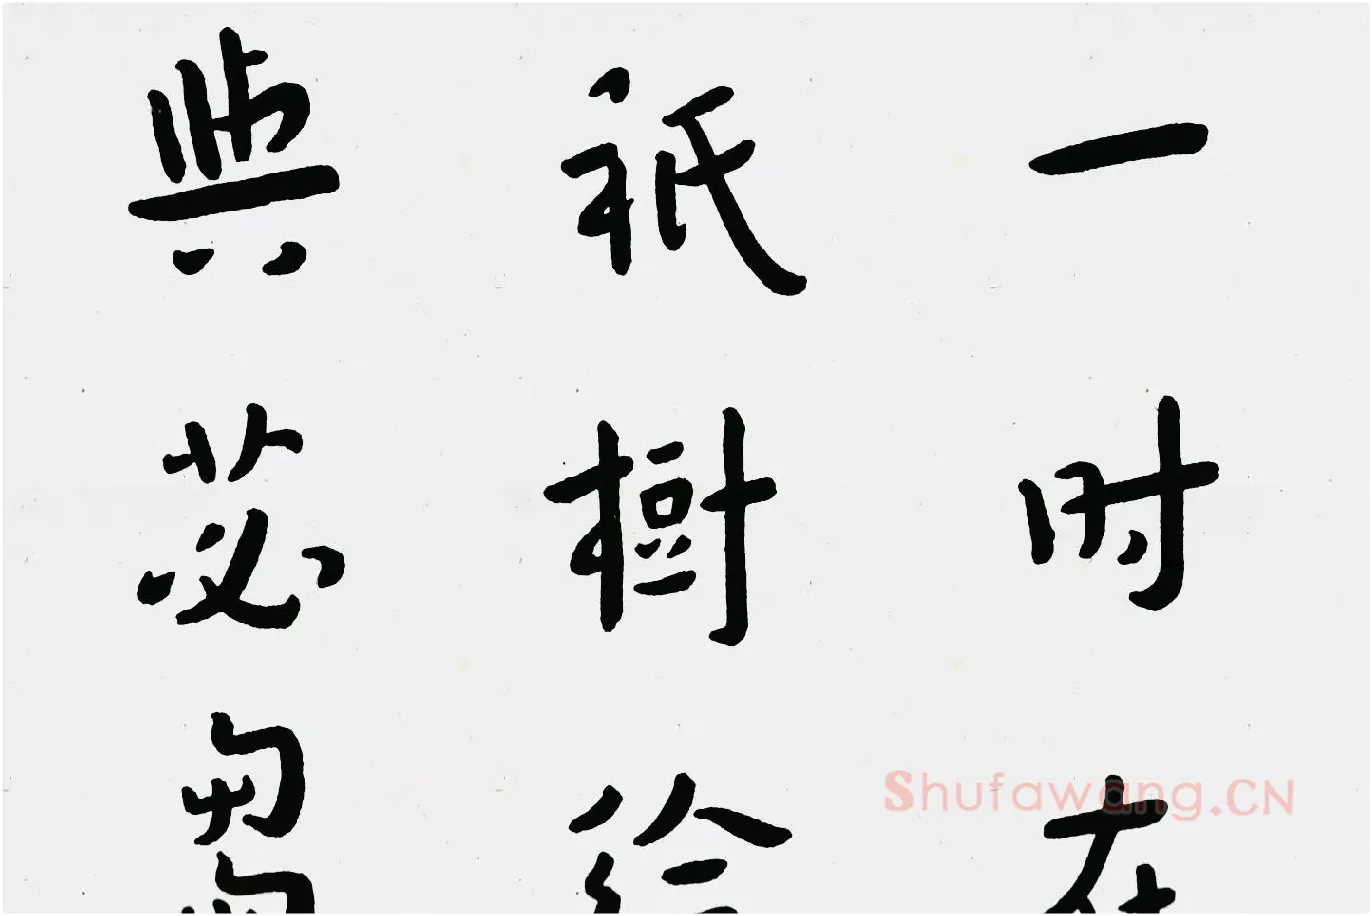 一时在
祇樹給
與苾芻
Shufawang.CN